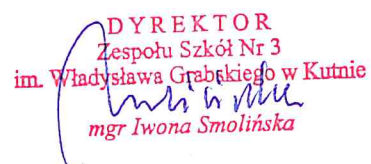 DYREKTOR
Zespołu Szkół Nr 3
im. Władysława Grabskiego w Kutnie
mgr Iwona Smolińska